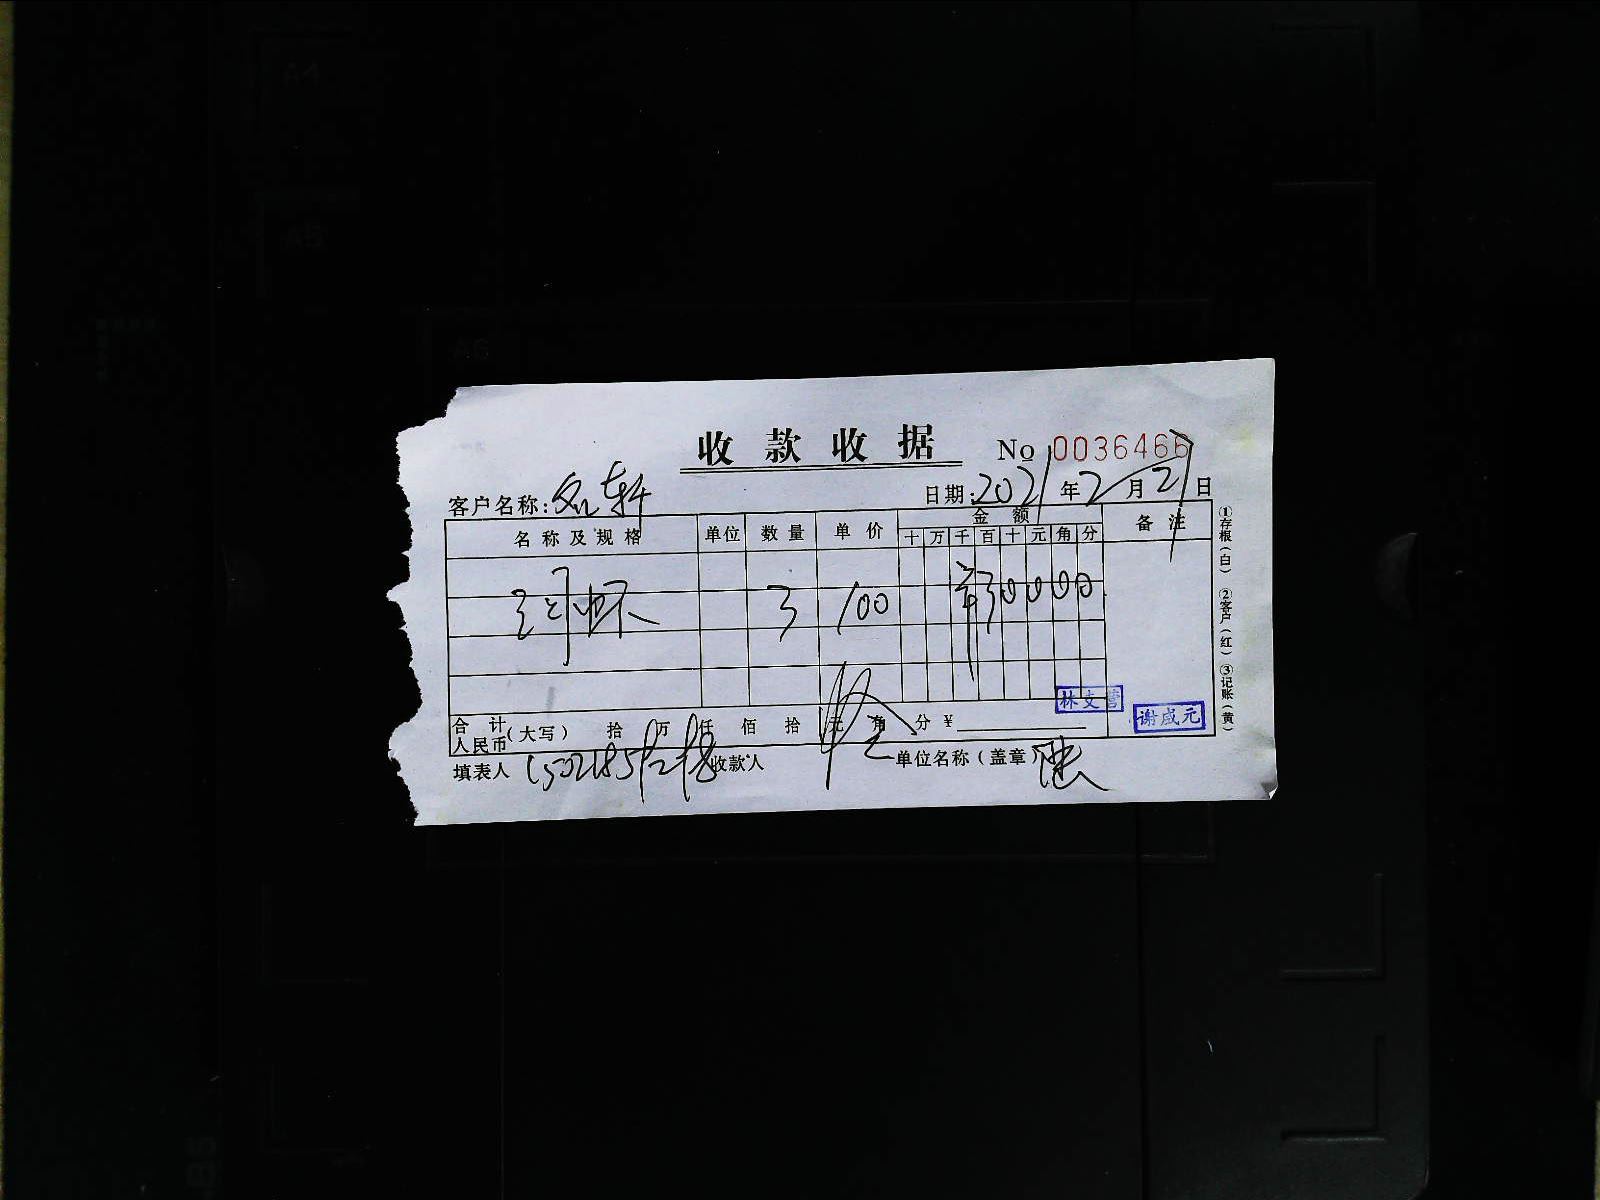 收款收据 No 0036466
客户名称: 日期: 2021 年 2 月 21 日
名称及规格 单位 数量 单价 金额 备注
十 万 千 百 十 元 角 分
3 100 ¥ 3 0 0 0 0
合计 人民币 (大写) 拾 万 仟 佰 拾 元 角 分 ¥
林支营 谢成元
填表人 收款人 单位名称(盖章)
①存根(白) ②客户(红) ③记账(黄)
A4
A5
A6
B5